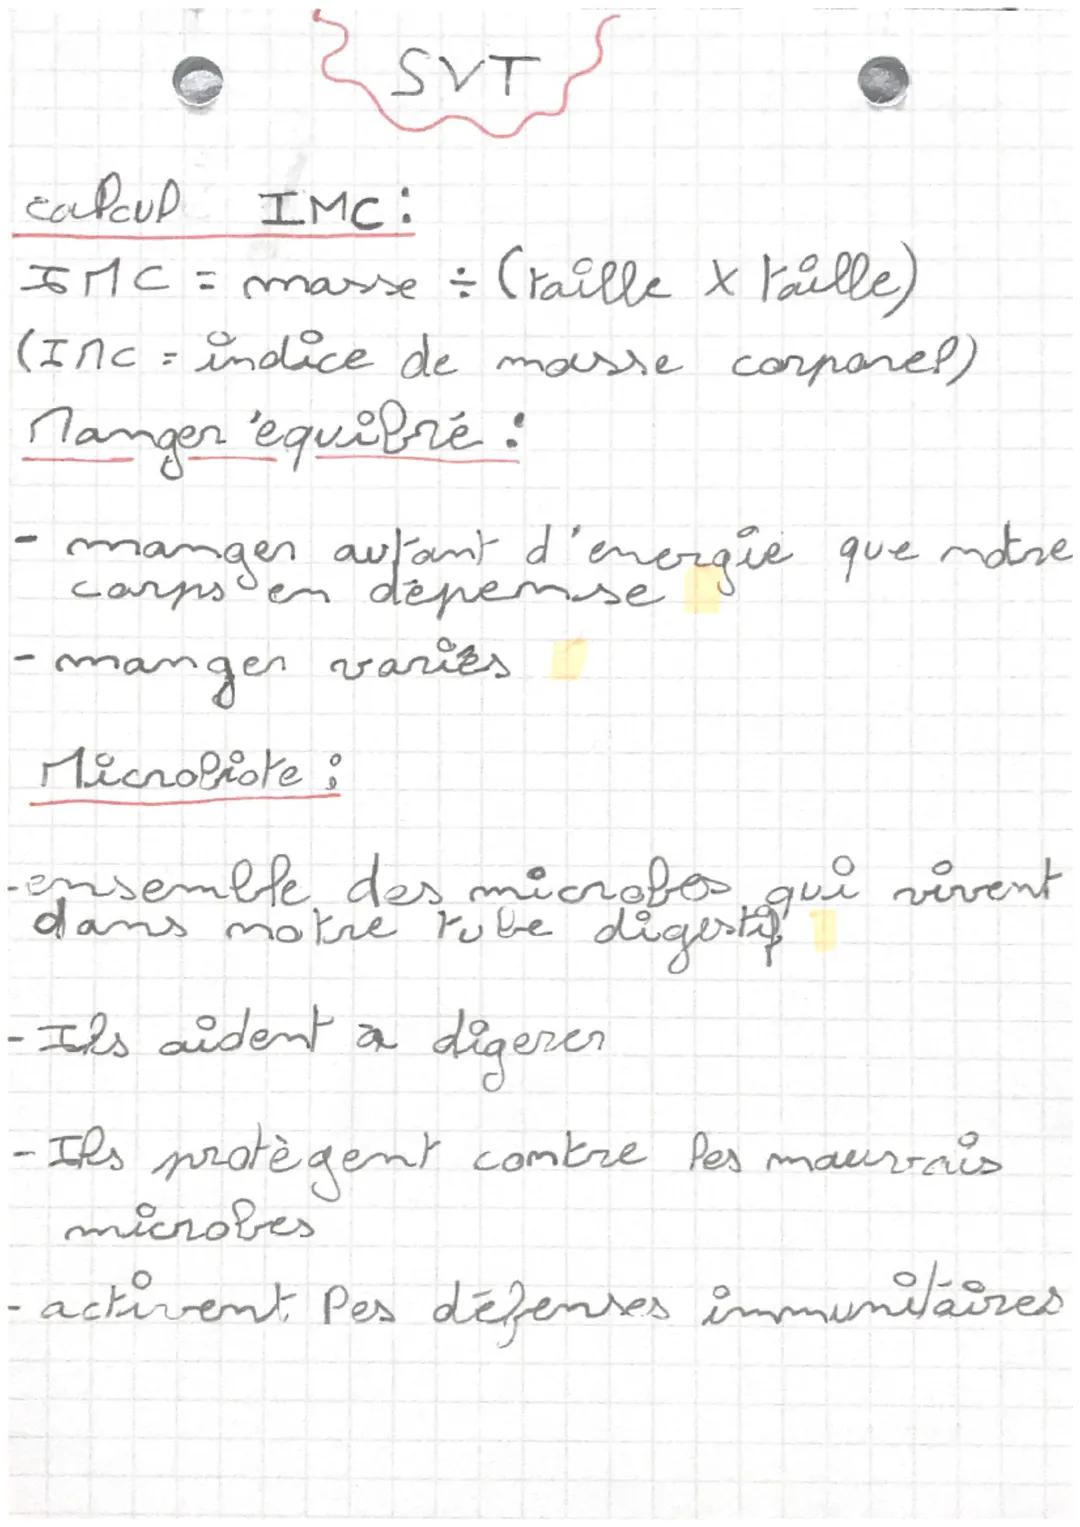 SVT
calcul IMC :
IMC = masse ÷ (taille x taille)
(IMC = indice de masse corporel)
Manger équilbré :
- manger autant d'energie que notre
corps en dépense
- manger variés
Microbiote :
- ensemble des microbes qui vivent
dans notre tube digestif
- Ils aident a digerer
- Ils protègent contre les mauvais
microbes
- activent les défenses immunitaires